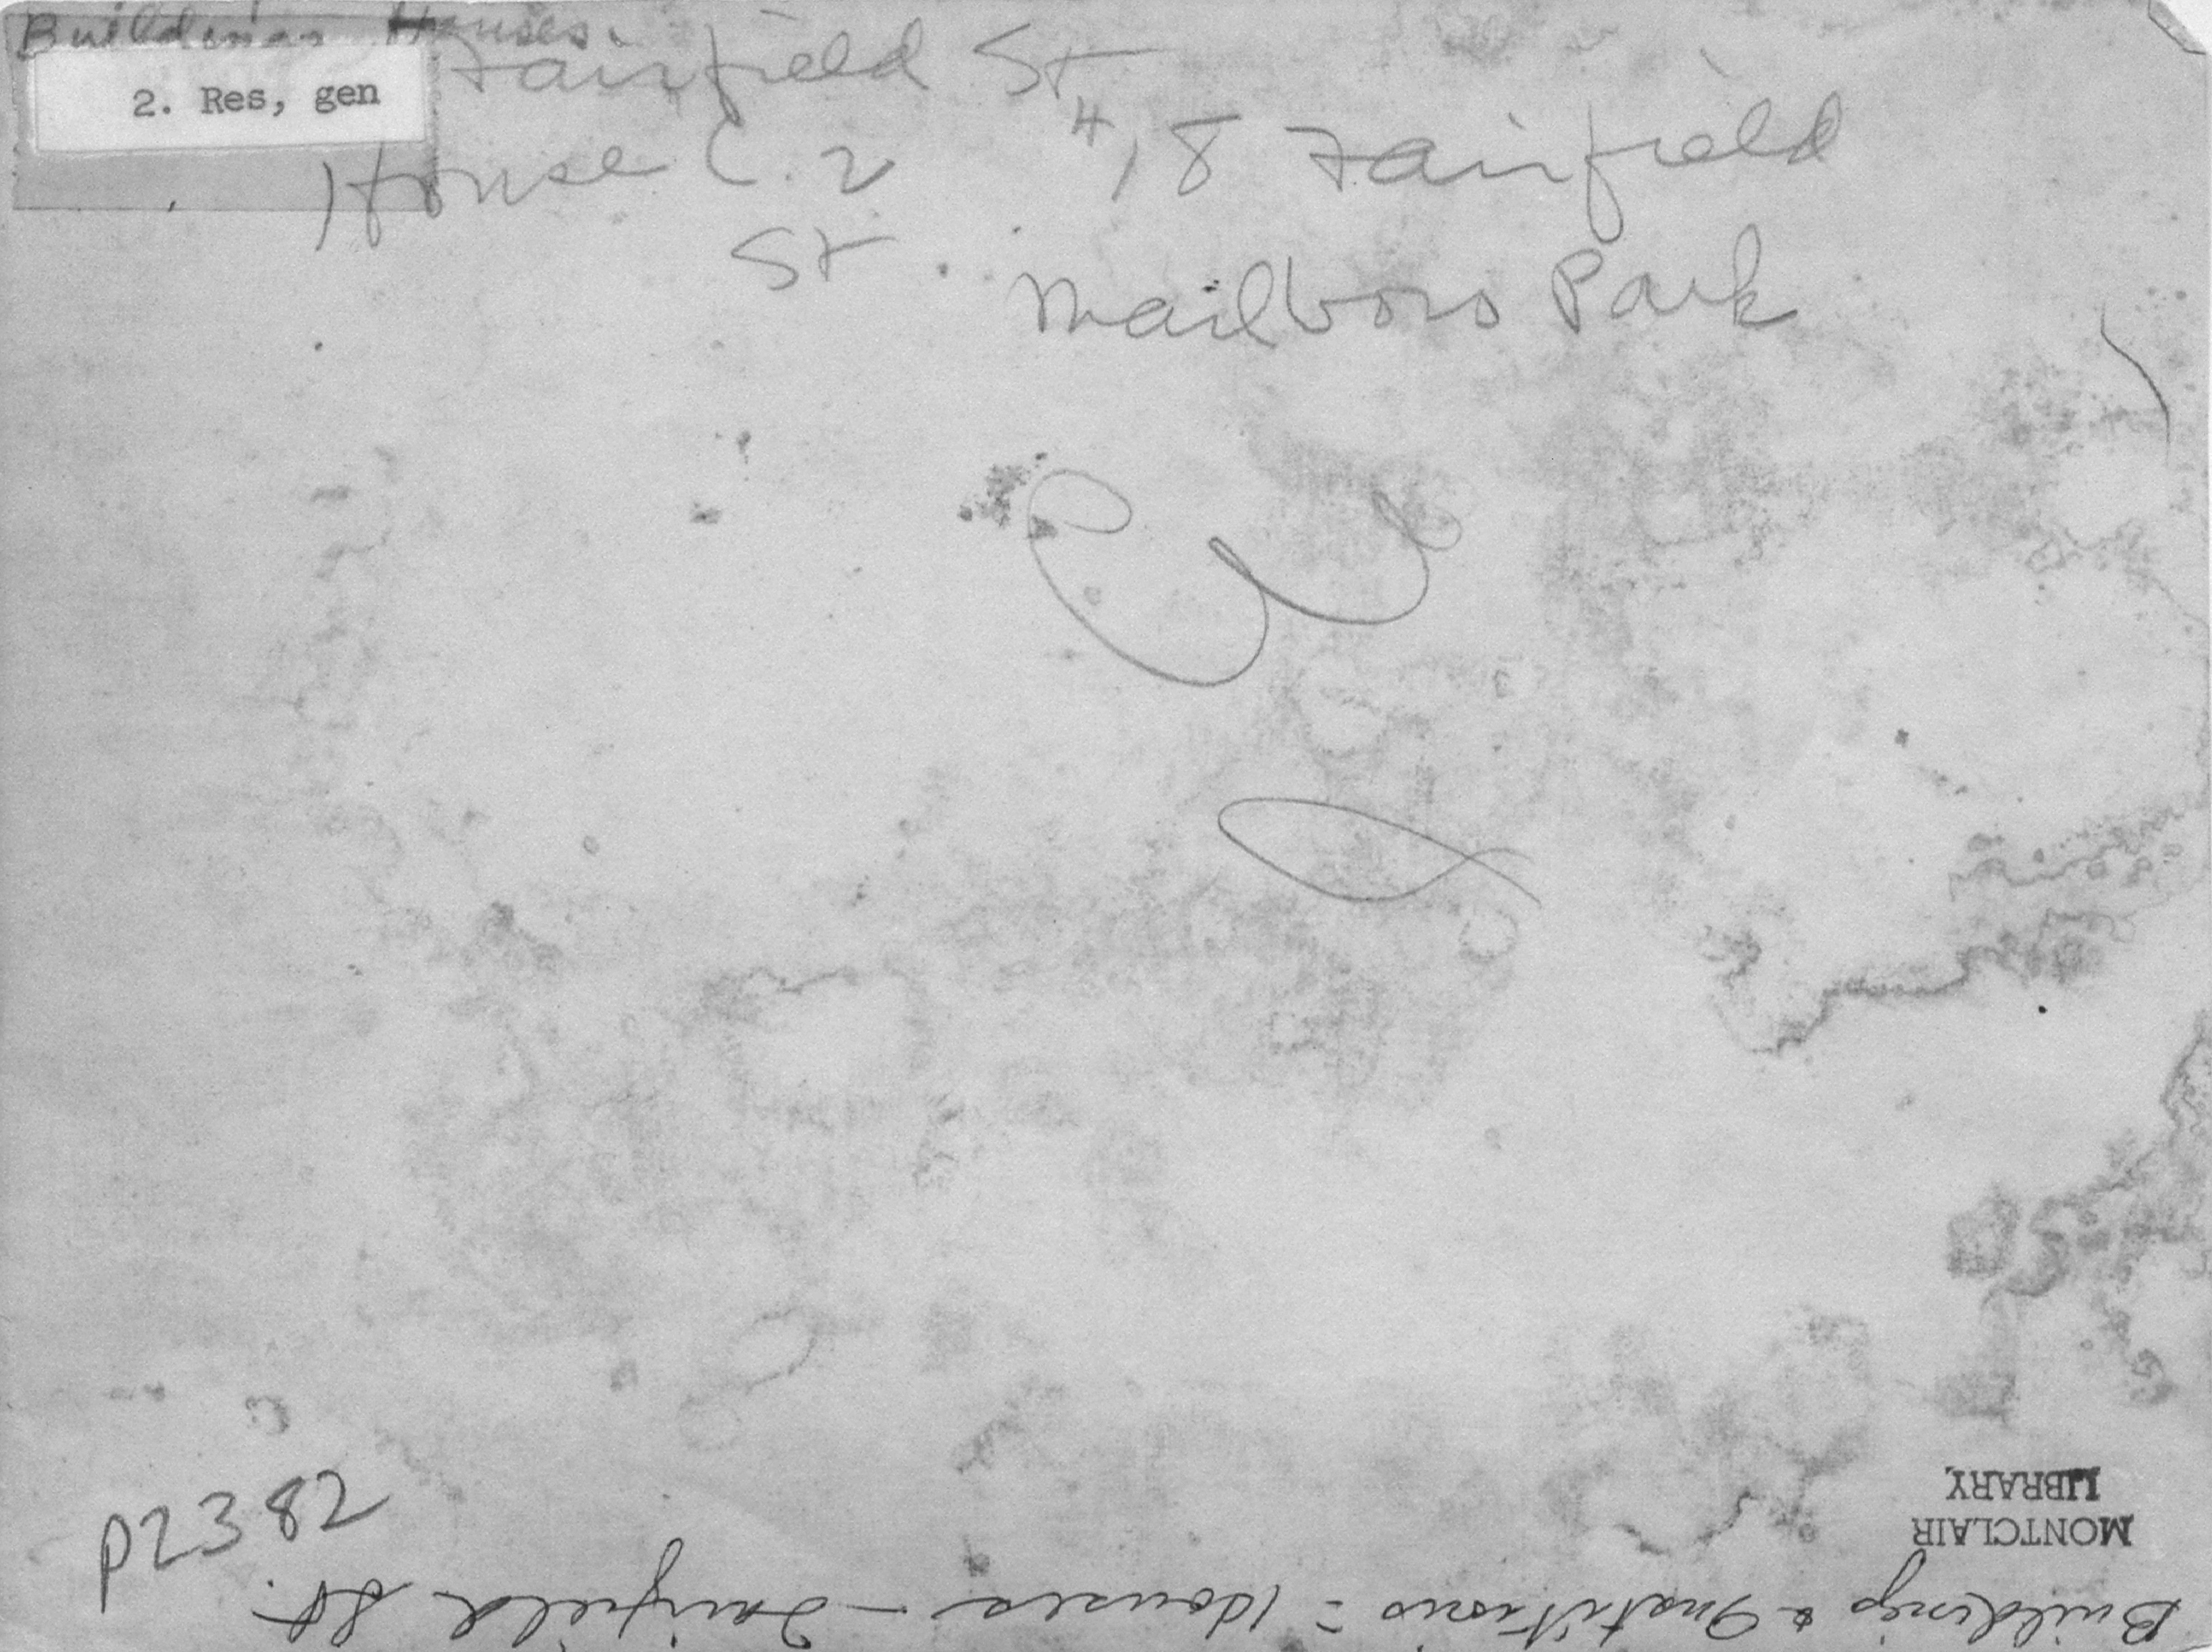 Buildings Houses.
2. Res, gen
Fairfield St
House C. 2 #18 Fairfield
St.
Marlboro Park
P2382
MONTCLAIR
LIBRARY
Buildings & Institutions = Houses - Fairfield St.